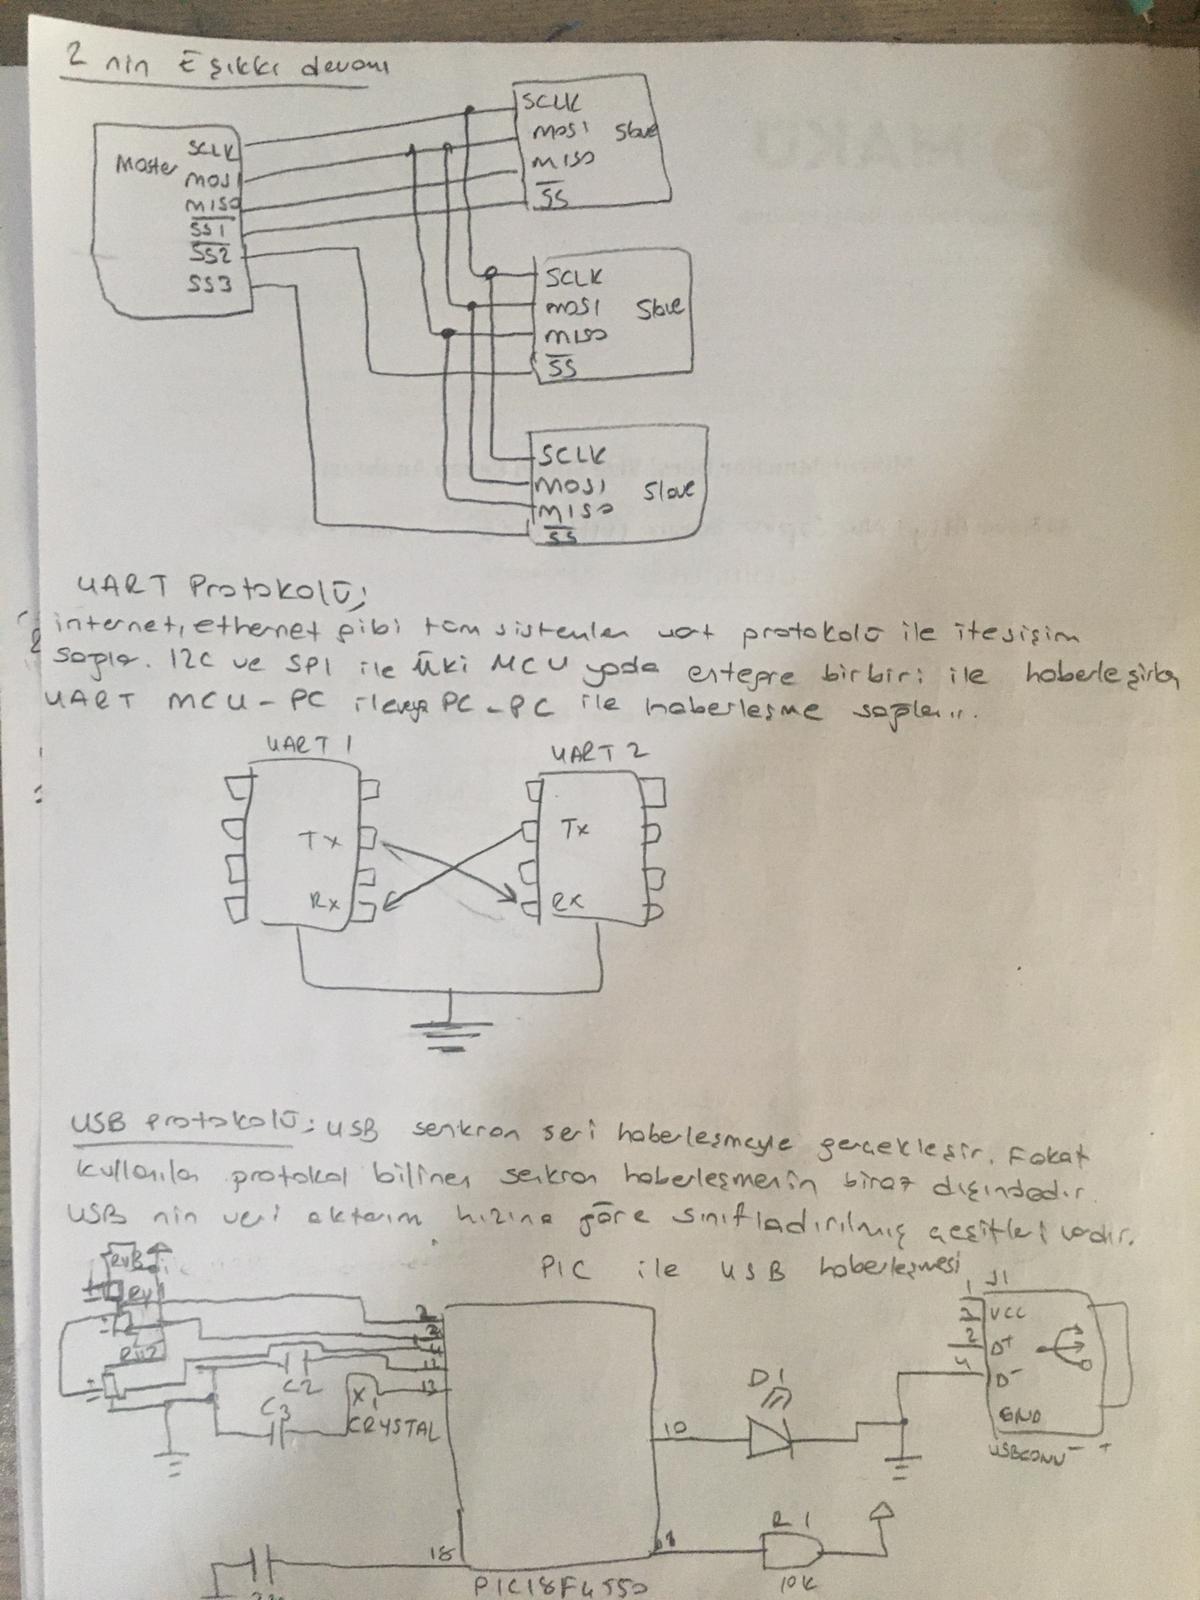 2 nin E şıkkı devamı
Master
SCLK
MOSI
MISO
SS1
SS2
SS3
SCLK
MOSI
MISO
SS
Slave
SCLK
MOSI
MISO
SS
Slave
SCLK
MOSI
MISO
SS
Slave
UART Protokolü;
internet, ethernet gibi tüm sistemler uart protokolü ile iteşişim
sağlar. I2C ve SPI ile iki MCU yada entegre birbiri ile haberleşirken
UART MCU-PC ile veya PC-PC ile haberleşme sağlanır.
UART 1
UART 2
Tx
Rx
Tx
RX
USB Protokolü; USB senkron seri haberleşmeyle gerçekleşir. Fakat
kullanılan protokol bilinen senkron haberleşmenin biraz dışındadır.
USB nin veri aktarım hızına göre sınıfladırılmış çeşitleri vardır.
PIC ile USB haberleşmesi
RV2
C2
C3
X1
CRYSTAL
2
13
18
10
1
PIC18F4550
D1
R1
10K
J1
1
3
2
4
VCC
D+
D-
GND
USBCONN
- +